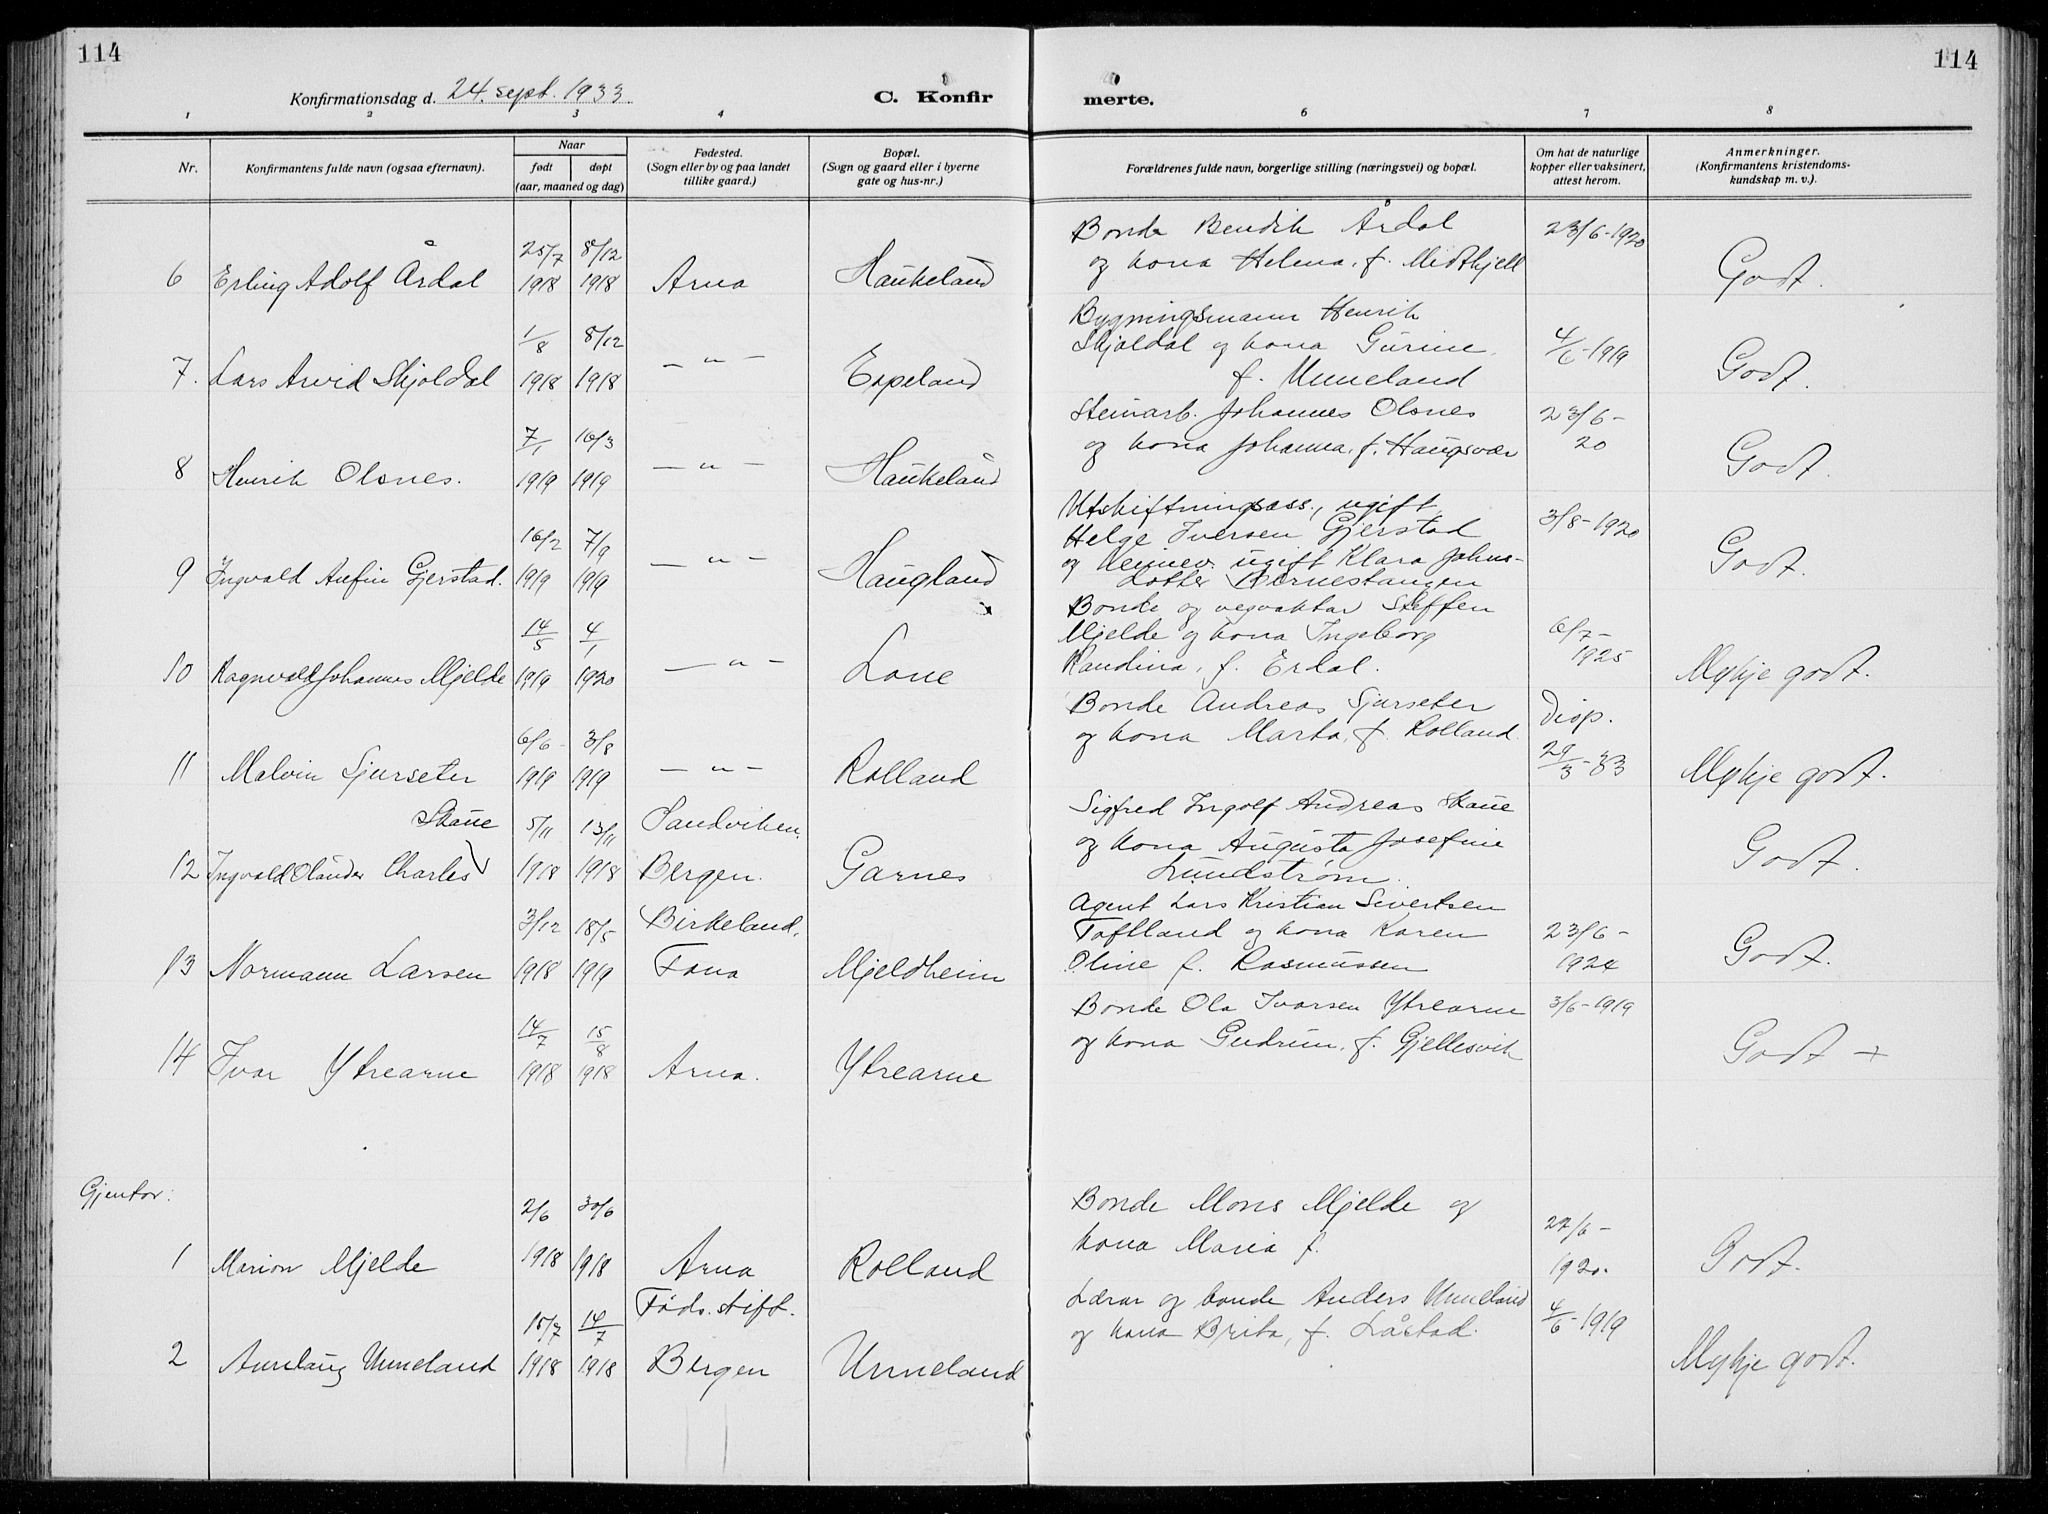 114
114
Konfirmationsdag d. 24. sept. 1933.
C. Konfir
merte.
1 2 3 4 5 6 7 8
Nr.
Konfirmantens fulde navn (ogsaa efternavn).
Naar
født
døpt
(aar, maaned og dag)
Fødested.
(Sogn eller by og paa landet
tillike gaard.)
Bopæl.
(Sogn og gaard eller i byerne
gate og hus-nr.)
Forældrenes fulde navn, borgerlige stilling (næringsvei) og bopæl.
Om hat de naturlige
kopper eller vaksinert,
attest herom.
Anmerkninger.
(Konfirmantens kristendoms-
kundskap m. v.).
25/7 8/12
6 Erling Adolf Årdal 1918 1918 Arna Haukeland
Bonde Bendik Årdal
og kona Helena, f. Midtkjell
23/6-1920
Godt.
1/8 8/12
7. Lars Arvid Skjoldal 1918 1918 — " — Espeland
Bygningsmann Henrik
Skjoldal og kona Gurine,
f. Unneland
4/6-1919
Godt.
7/1 16/3
8 Henrik Olsnes. 1919 1919 — " — Haukeland
Steinarb. Johannes Olsnes
og kona Johanna, f. Haugsvær
23/6-
20
Godt.
16/2 7/9
9 Ingvald Anfin Gjerstad. 1919 1919 — " — Haugland
Utskiftningsass., ugift
Helge Iversen Gjerstad
og heimev. ugift Klara Johns-
dotter Bornestangen
3/8-1920
Godt.
14/5 4/1
10 Ragnvald Johannes Mjelde 1919 1920 — " — Lone
Bonde og vegvaktar Steffen
Mjelde og kona Ingeborg
Randina, f. Erdal.
6/7-
1925
Mykje godt.
6/6- 3/8
11 Malvin Sjurseter 1919 1919 — " — Rolland
Bonde Andreas Sjurseter
og kona Marta, f. Rolland.
Disp.
29/3-33
Mykje godt.
Skaue 5/11 13/11 Sandviken,
12 Ingvald Olander Charles 1918 1918 Bergen. Garnes
Sigfred Ingolf Andreas Skaue
og kona Augusta Josefine
Lundstrøm.
Godt.
3/12 18/5 Birkeland,
13 Normann Larsen 1918 1919 Fana Mjeldheim
Agent Lars Kristian Sivertsen
Toftland og kona Karen
Oline f. Rasmussen
23/6-
1924
Godt.
14/7 15/8
14 Ivar Ytrearne 1918 1918 Arna. Ytrearne
Bonde Ola Ivarsen Ytrearne
og kona Gudrun, f. Gjellesvik
3/6-1919
Godt +
Gjentor:
2/6 30/6
1 Marion Mjelde 1918 1918 Arna Rolland
Bonde Mons Mjelde og
kona Maria f.
22/6-
1920.
Godt.
15/7 14/7 Føds. stift.
2 Aunlaug Unneland 1918 1918 Bergen Unneland
Lærar og bonde Anders Unneland
og kona Brita, f. Låstad.
4/6-1919
Mykje godt.